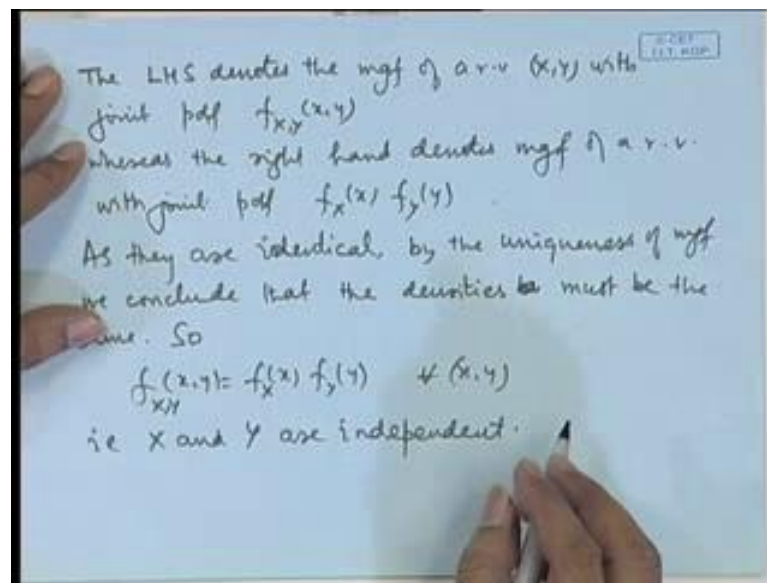 © CET
I.I.T. KGP
The LHS denotes the mgf of a r.v (X,Y) with
joint pdf f_{X,Y}(x,y)
whereas the right hand denotes mgf of a r.v.
with joint pdf f_X(x) f_Y(y)
As they are identical, by the uniqueness of mgf
we conclude that the densities must be the
same. So
f_{X,Y}(x,y) = f_X(x) f_Y(y) ∀ (x,y)
ie X and Y are independent.